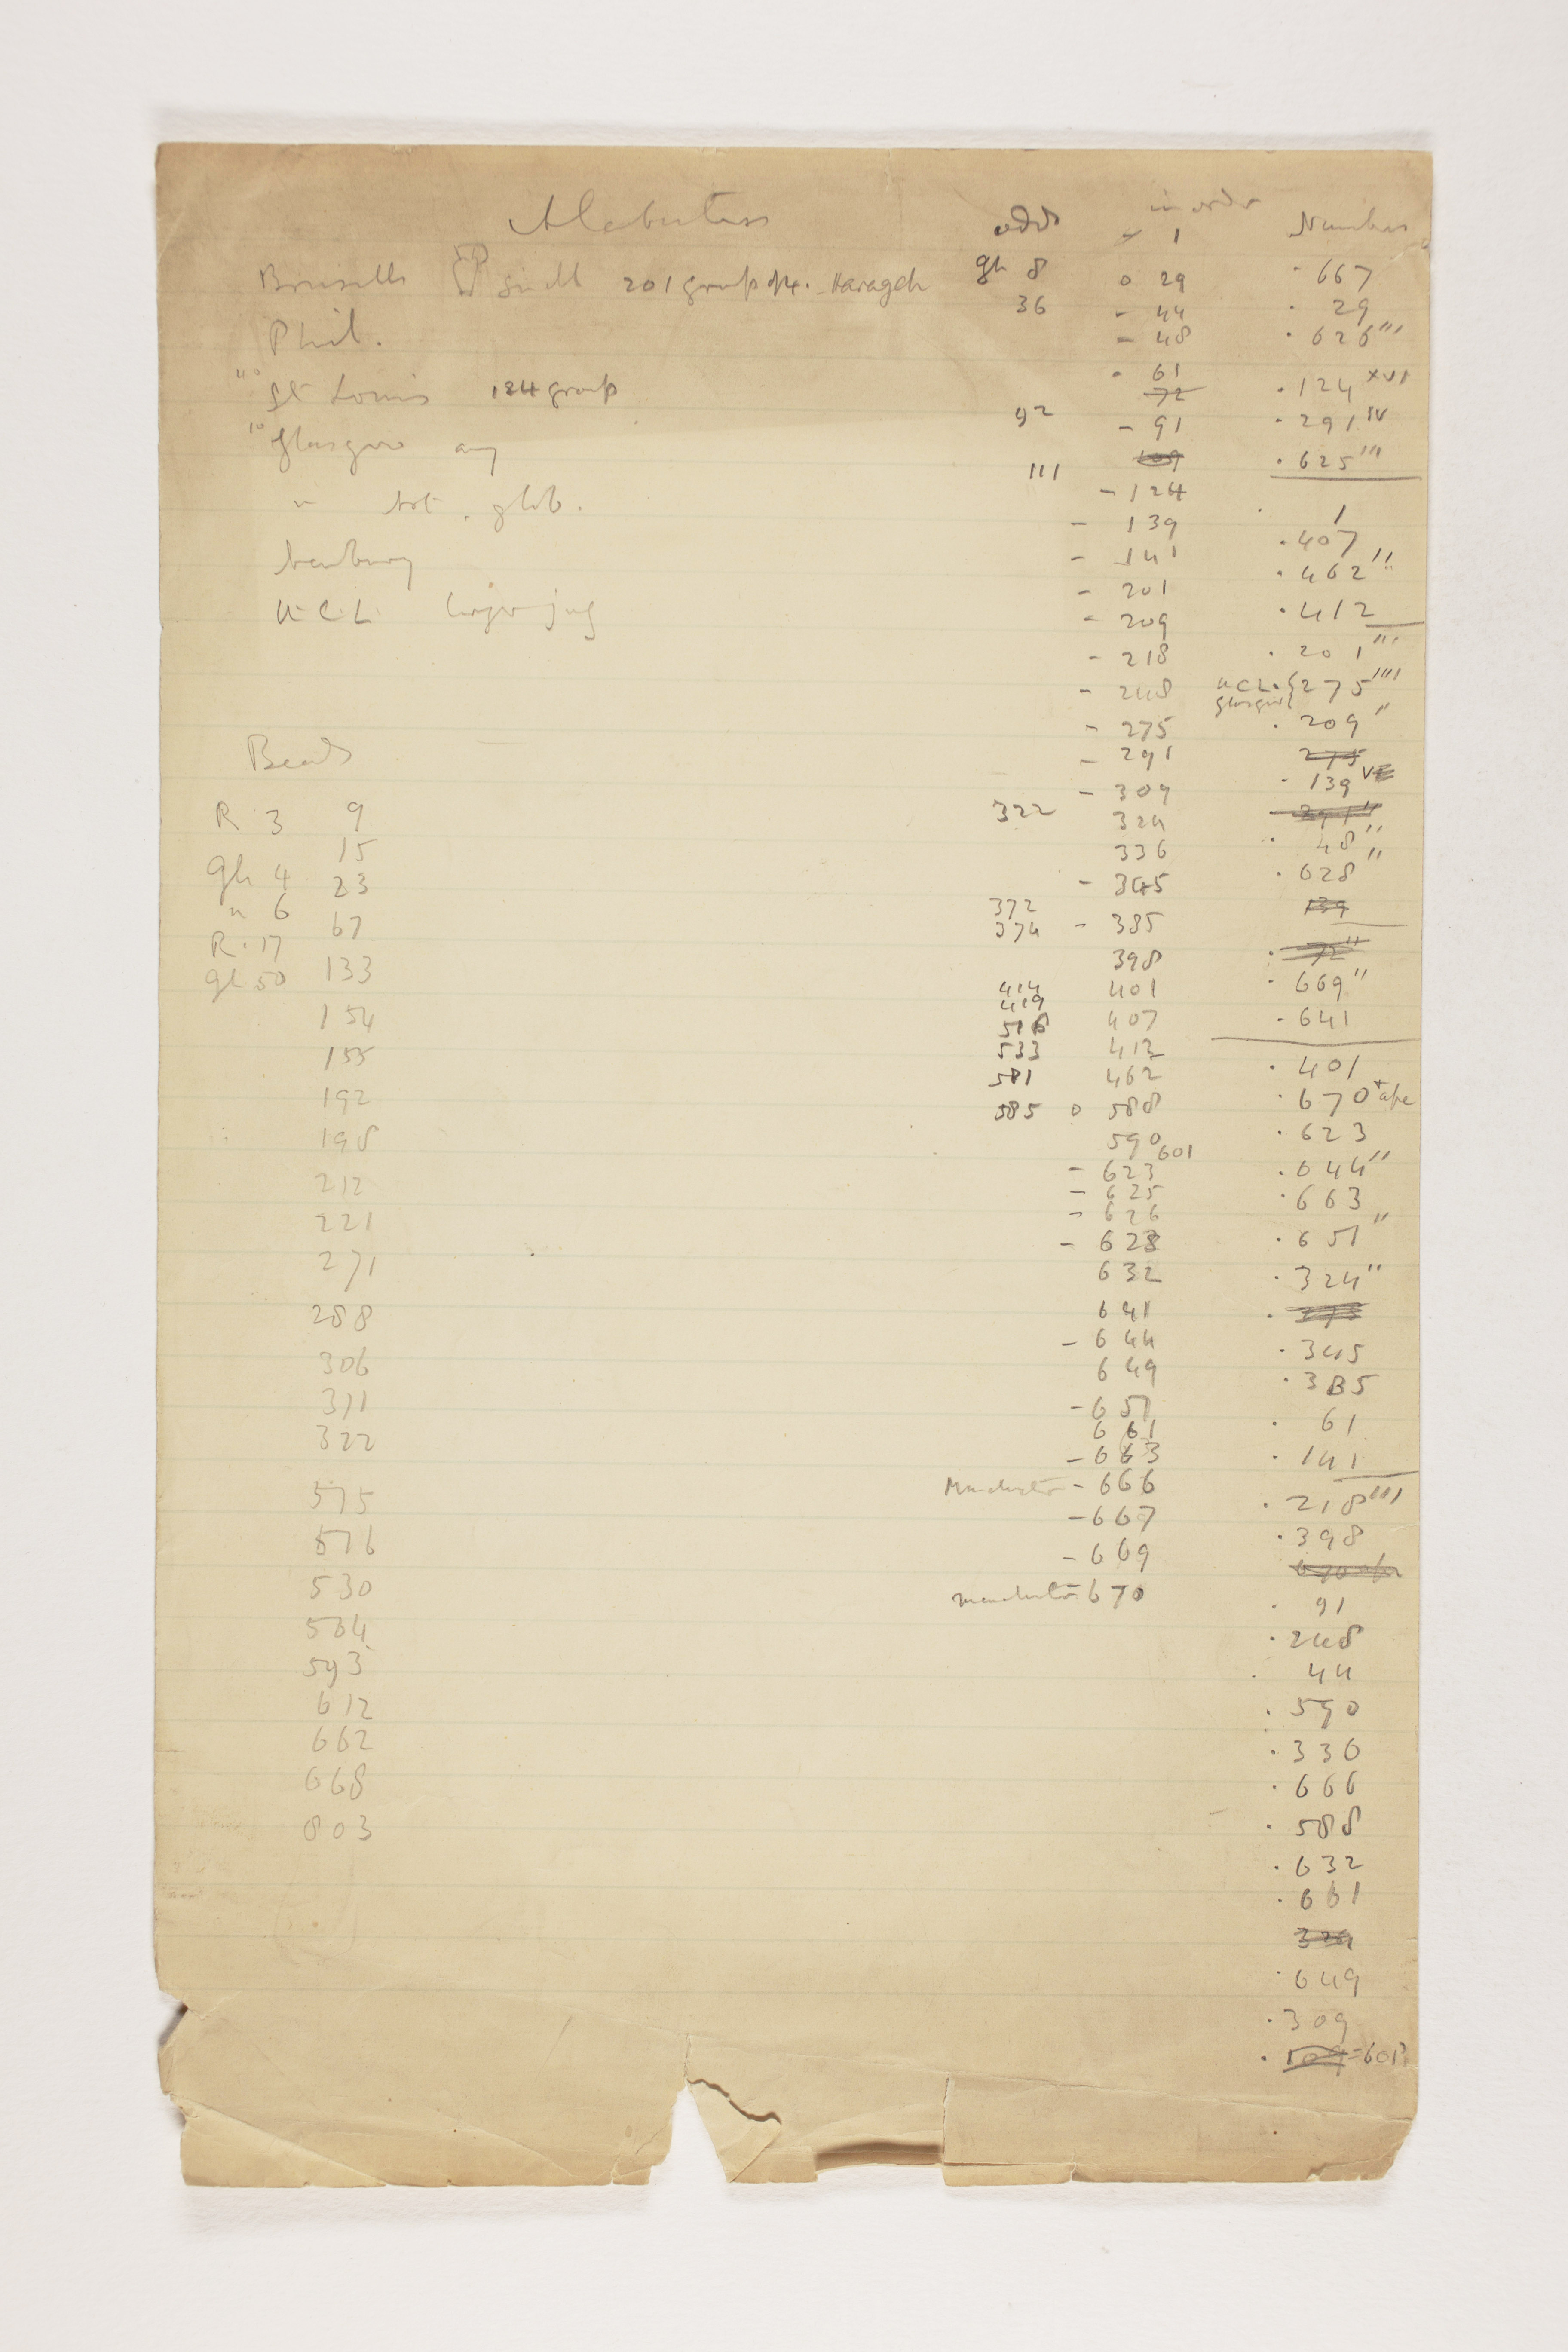 Alabasters
Brussels small 201 group pl4. Harageh
Phil.
St Louis 124 group
10 Glasgow any
" tot. glob.
Newbury
U.C.L. larger jug
Beads
R 3 9
15
Gh 4 23
" 6 67
R. 17
Gh 50 133
154
155
192
198
212
221
271
288
306
311
322
515
516
530
534
593
612
662
668
803
adds
gh 8
36
92
111
322
372
374
414
419
516
533
581
585
in order
- 1
o 29
- 44
- 48
- 61
72
- 91
109
- 124
- 139
- 141
- 201
- 209
- 218
- 248
- 275
- 291
- 309
324
336
- 345
- 385
398
401
407
412
462
o 588
590 601
- 623
- 625
- 626
- 628
632
641
- 644
649
- 651
661
- 663
Manchester - 666
- 667
- 669
Manchester - 670
Numbers
· 667
· 29
· 626 '''
· 124 XVI
· 291 IV
· 625 '''
· 1
· 407
· 462 ''
· 412
· 201 '''
UCL. Glasgow { 275 ''''
· 209 ''
275
· 139 V
291 ''
· 48 ''
· 628 ''
139
· 72 ''
· 669 ''
· 641
· 401
· 670 + ape
· 623
· 644 ''
· 663
· 651 ''
· 324 ''
· 345
· 385
· 61
· 141
· 218 '''
· 398
670 ape
· 91
· 248
· 44
· 590
· 336
· 666
· 588
· 632
· 661
324
· 649
· 309
· 109 = 601?